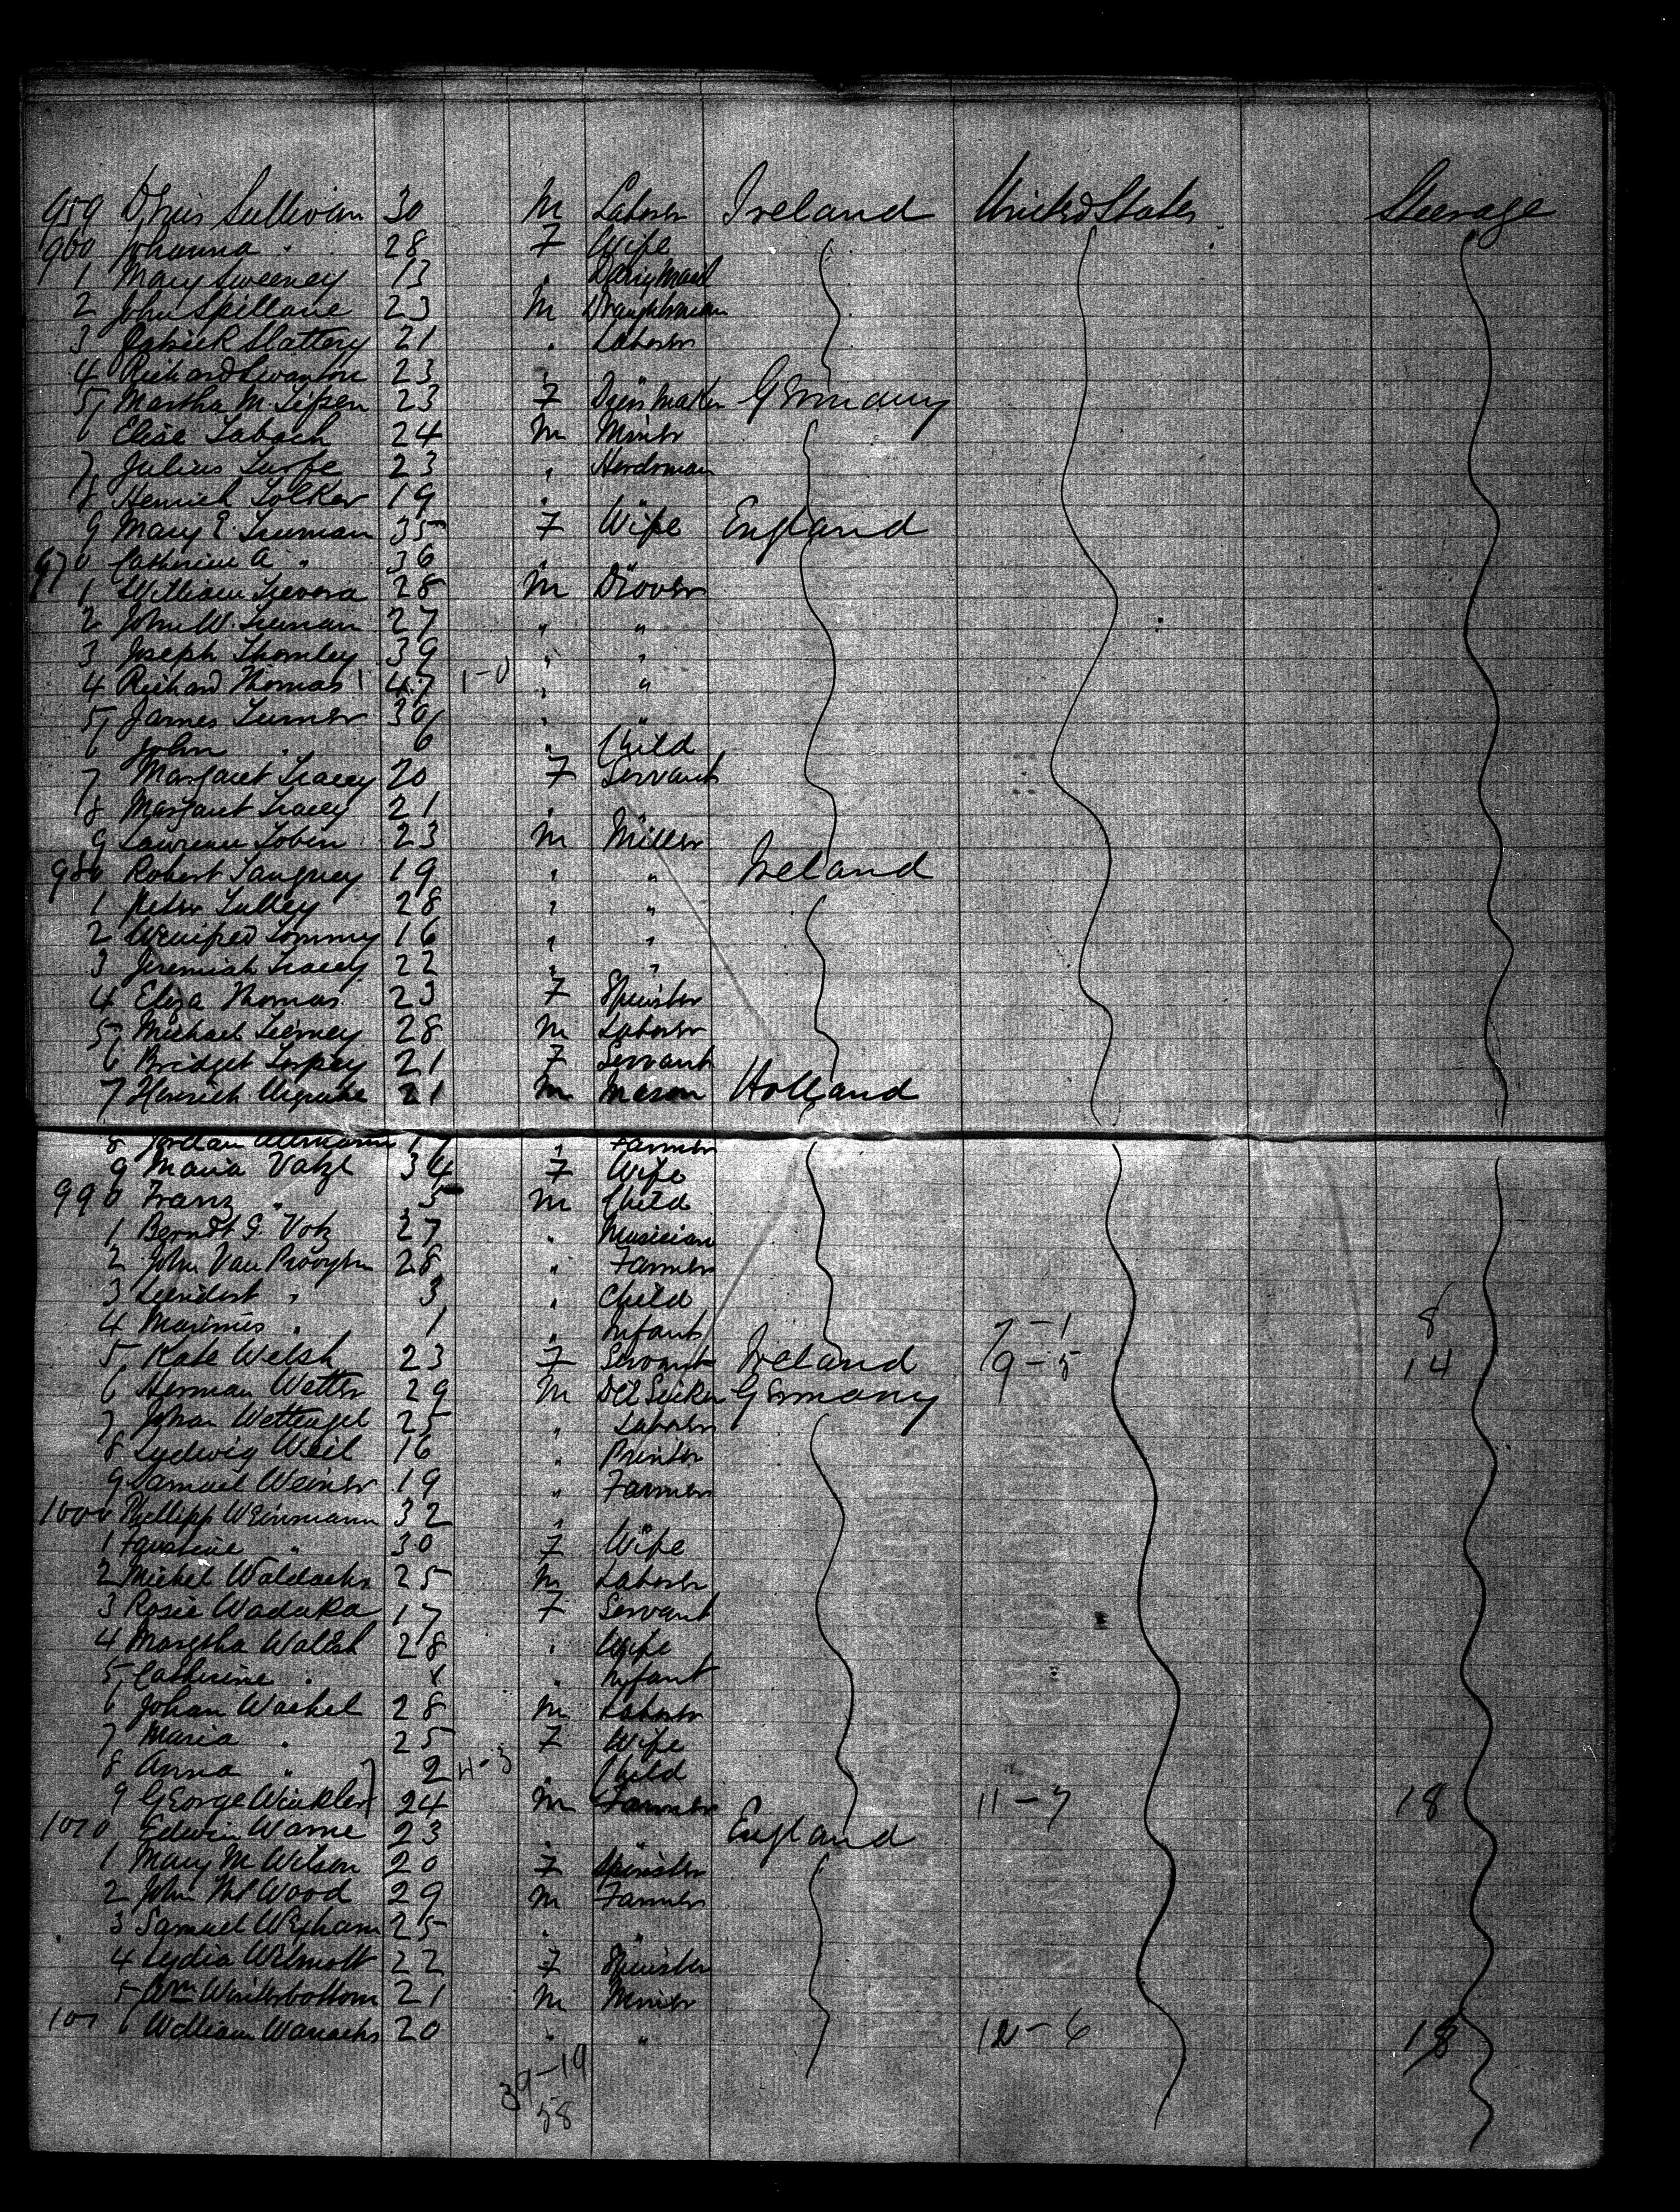 959 Denis Sullivan 30 M Laborer Ireland United States Steerage
960 Johanna " 28 F Wife
1 Mary Sweeney 13 " Dairy Maid
2 John Spillane 23 M Draughtsman
3 Patrick Slattery 21 " Laborer
4 Richard Swanton 23 " "
5 Martha M. 23 F Dressmaker Germany
6 Elise Labach 24 M Miner
7 Julius 23 " Herdsman
8 Henrich Tolker 19 " "
9 Mary E. Truman 35 F Wife England
970 Catherine A " 36 " "
1 William 28 M Drover
2 John W. Truman 27 " "
3 Joseph Thornley 39 " "
4 Richard Thomas 47 1-0 " "
5 James Turner 30 " "
6 John " 6 " Child
7 Margaret Tracey 20 F Servant
8 Margaret Tracey 21 " "
9 23 M Miller
980 Robert Tanguey 19 " " Ireland
1 Peter Tulley 28 " "
2 Winifred Tommy 16 " "
3 Jeremiah Tracey 22 " "
4 Eliza Thomas 23 F Spinster
5 Michael Tierney 28 M Laborer
6 Bridget Torpey 21 F Servant
7 Henrich 21 M Mason Holland
8 " Farmer
9 Maria Vatzl 34 F Wife
990 Franz " 5 M Child
1 Berndt G. Votz 27 " Musician
2 John Van 28 " Farmer
3 Leendert " 3 " Child
4 Marinus " 1 " Infant 7-1 8
5 Kate Welsh 23 F Servant Ireland 9-5 14
6 Herman Wetter 29 M Germany
7 Johan Wettengel 25 " Laborer
8 Ludwig Weil 16 " Printer
9 Samuel Weiner 19 " Farmer
1000 Phillipp Weinmann 32 " "
1 Faustine " 30 F Wife
2 Michel 25 M Laborer
3 Rosie Waduka 17 F Servant
4 Margtha Walsh 28 " Wife
5 Catherine " " Infant
6 Johan Wachel 28 M Laborer
7 Maria " 25 F Wife
8 Anna " 2 4-3 " Child
9 George Winkler 24 M Farmer 11-7 18
1010 Edwin Warne 23 " " England
1 Mary M Wilson 20 F Spinster
2 John Wood 29 M Farmer
3 Samuel Wexham 25 " "
4 Lydia Wilmott 22 F Spinster
5 Wm Winterbottom 21 M Miner
101 6 William 20 " " 12-6 18
39-19
58